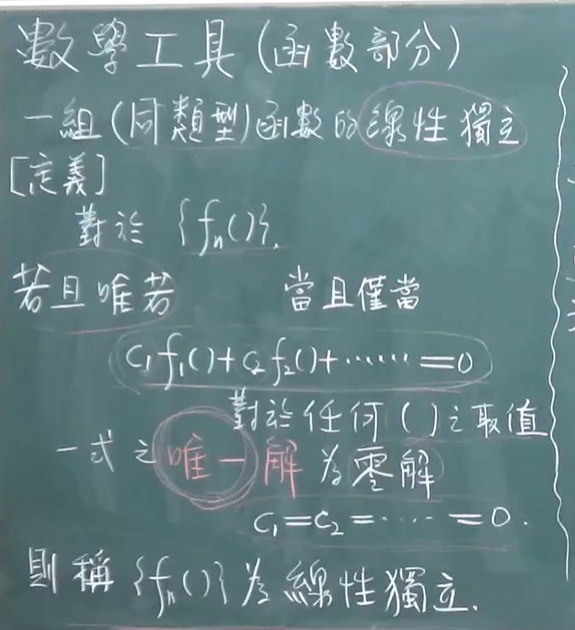 數學工具(函數部分)
一組(同類型)函數的線性獨立
[定義]
對於 {fn()},
若且唯若 當且僅當
c1f1()+c2f2()+……=0
對於任何()之取值
一式之唯一解為零解
c1=c2=……=0.
則稱{fn()}為線性獨立.